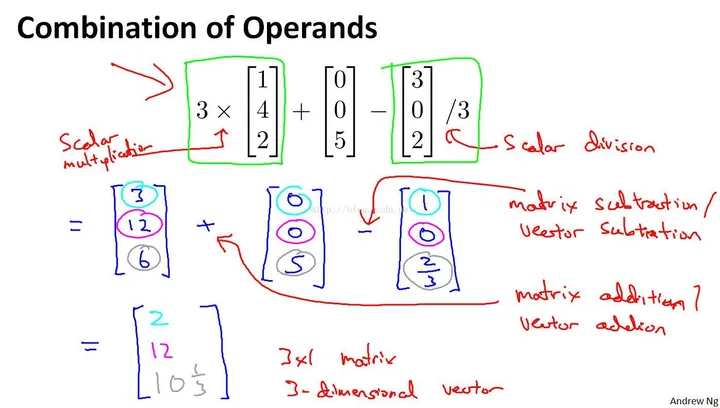 Combination of Operands
3 × [1 4 2] + [0 0 5] − [3 0 2] /3
Scalar
multiplication
Scalar division
= [3 12 6] + [0 0 5] - [1 0 2/3]
matrix subtraction /
vector subtration
matrix addition /
vector addion
= [2 12 10 1/3]
3x1 matrix
3-dimensional vector
Andrew Ng